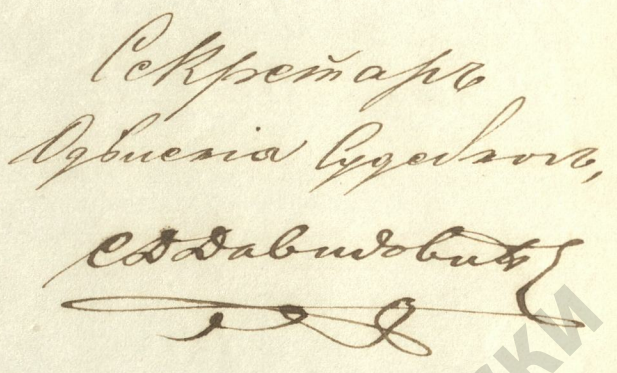 Секретаръ
Одѣленія Судебногъ,
С Д Давидовић